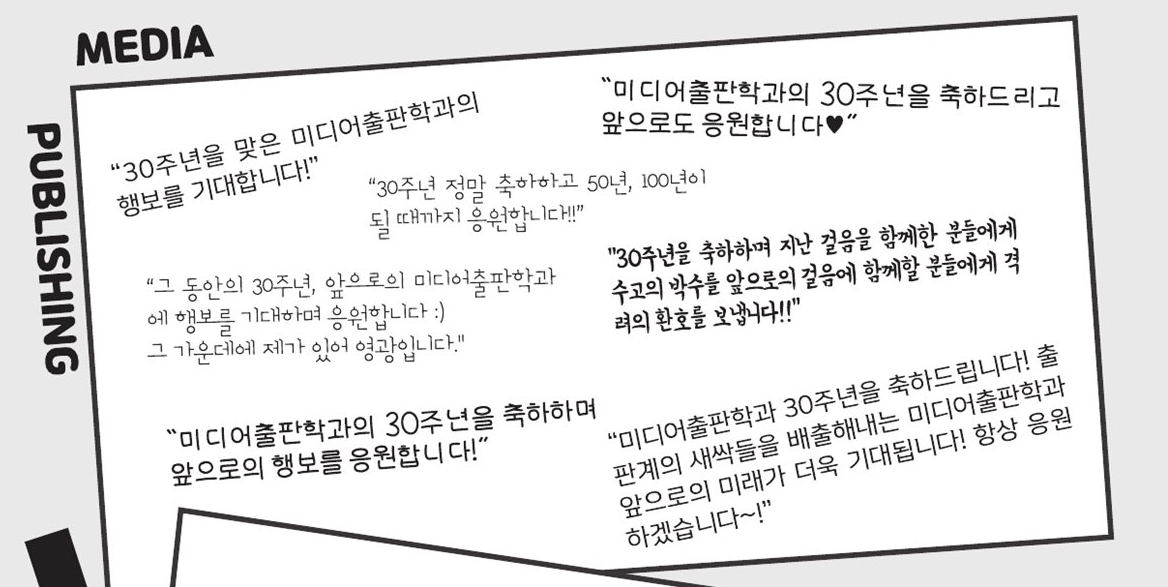 MEDIA
PUBLISHING
“30주년을 맞은 미디어출판학과의
행보를 기대합니다!”
“미디어출판학과의 30주년을 축하드리고
앞으로도 응원합니다♥”
“30주년 정말 축하하고 50년, 100년이
될 때까지 응원합니다!!”
"30주년을 축하하며 지난 걸음을 함께한 분들에게
수고의 박수를 앞으로의 걸음에 함께할 분들에게 격
려의 환호를 보냅니다!!"
“그 동안의 30주년, 앞으로의 미디어출판학과
에 행보를 기대하며 응원합니다 :)
그 가운데에 제가 있어 영광입니다."
“미디어출판학과의 30주년을 축하하며
앞으로의 행보를 응원합니다!”
“미디어출판학과 30주년을 축하드립니다! 출
판계의 새싹들을 배출해내는 미디어출판학과
앞으로의 미래가 더욱 기대됩니다! 항상 응원
하겠습니다~!”